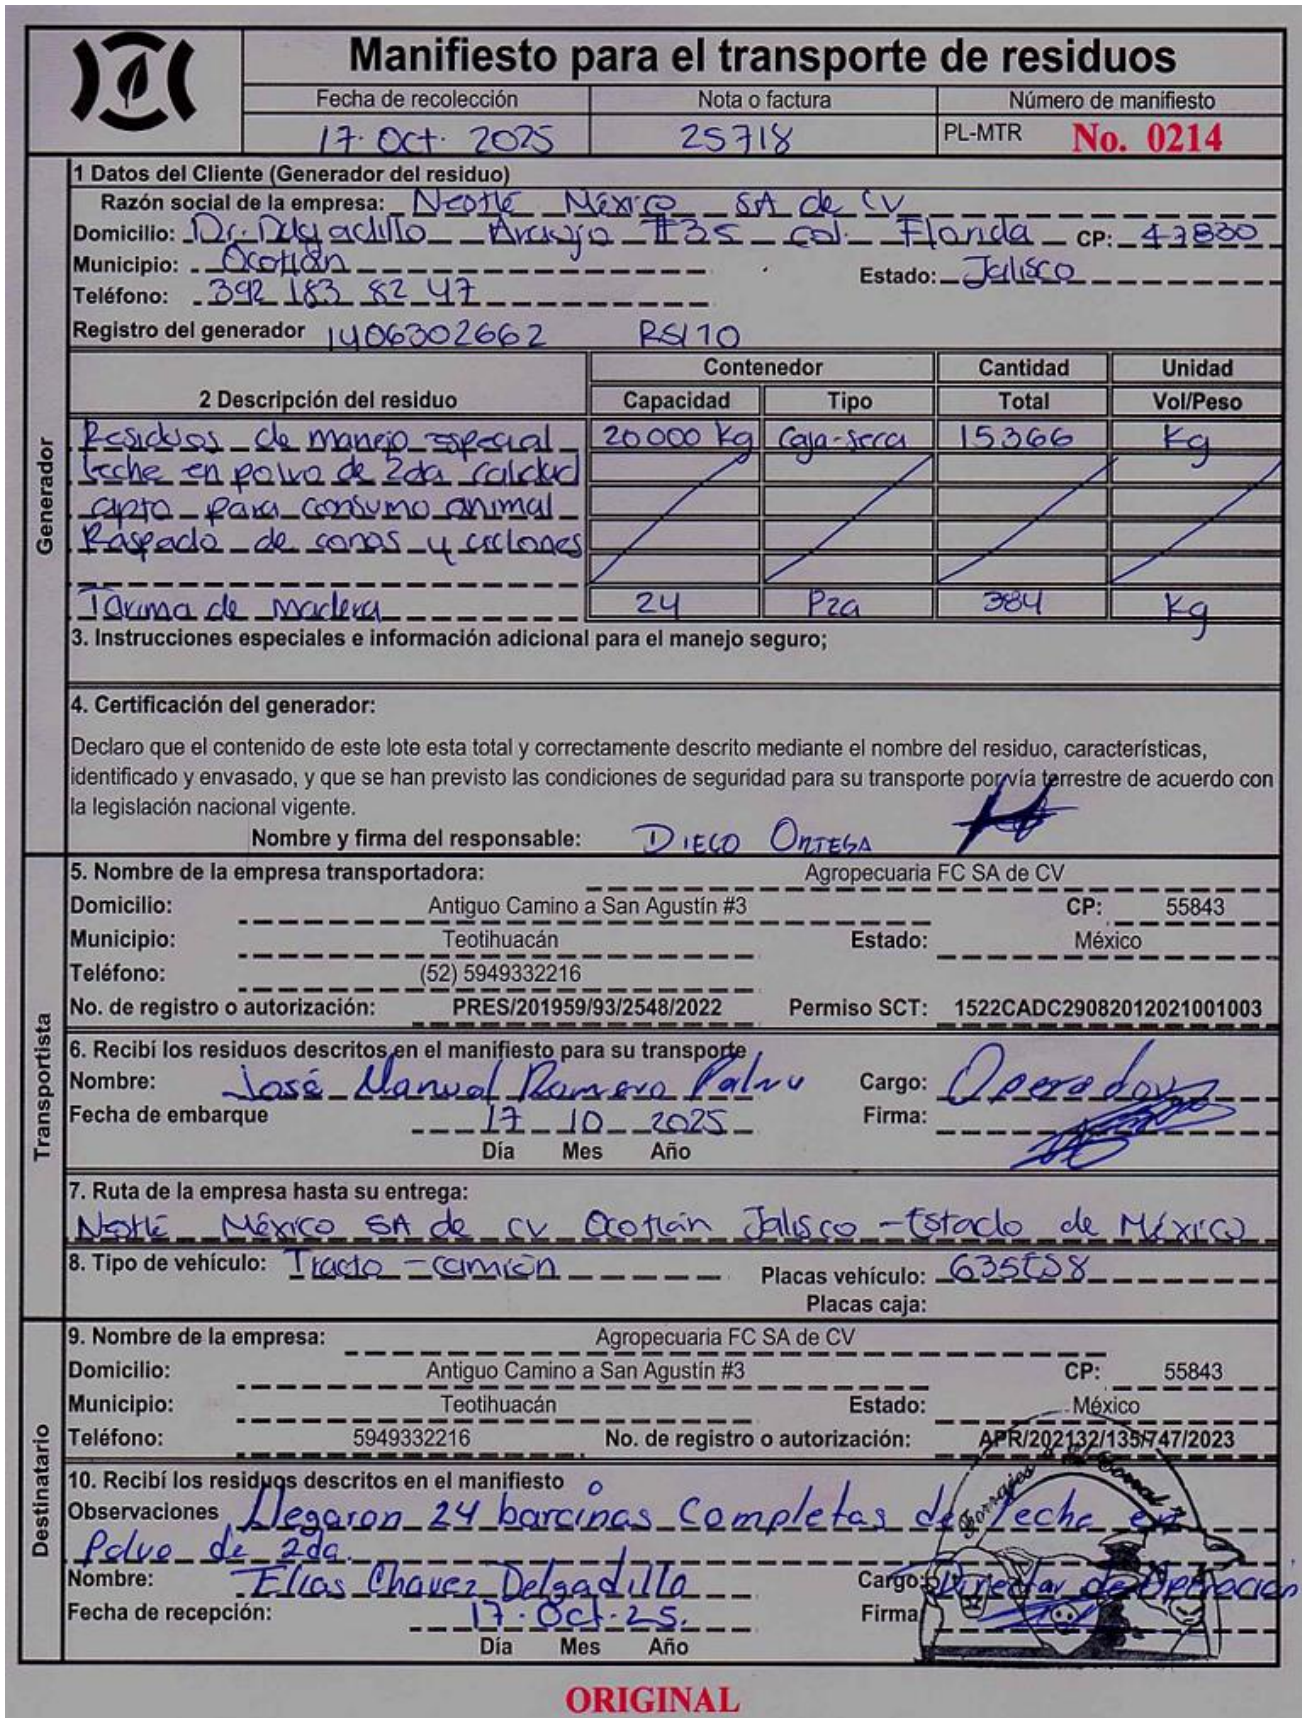 Manifiesto para el transporte de residuos
Fecha de recolección Nota o factura Número de manifiesto
17. Oct. 2025 25718 PL-MTR No. 0214
1 Datos del Cliente (Generador del residuo)
Razón social de la empresa: Nestlé México SA de CV
Domicilio: Dr. Delgadillo Araujo #35 col. Florida CP: 47830
Municipio: Ocotlán Estado: Jalisco
Teléfono: 392 183 82 47
Registro del generador 1406302662 RSI 10
Contenedor Cantidad Unidad
2 Descripción del residuo Capacidad Tipo Total Vol/Peso
Residuos de manejo especial 20000 kg Caja-seca 15366 Kg
leche en polvo de 2da calidad
apta para consumo animal
Raspado de conos y ciclones
Tarima de madera 24 Pza 384 Kg
3. Instrucciones especiales e información adicional para el manejo seguro;
4. Certificación del generador:
Declaro que el contenido de este lote esta total y correctamente descrito mediante el nombre del residuo, características,
identificado y envasado, y que se han previsto las condiciones de seguridad para su transporte por vía terrestre de acuerdo con
la legislación nacional vigente.
Nombre y firma del responsable: DIEGO ORTEGA
Generador
5. Nombre de la empresa transportadora: Agropecuaria FC SA de CV
Domicilio: Antiguo Camino a San Agustín #3 CP: 55843
Municipio: Teotihuacán Estado: México
Teléfono: (52) 5949332216
No. de registro o autorización: PRES/201959/93/2548/2022 Permiso SCT: 1522CADC29082012021001003
6. Recibí los residuos descritos en el manifiesto para su transporte
Nombre: José Manuel Romero Cargo: Operador
Fecha de embarque 17 10 2025 Firma:
Día Mes Año
7. Ruta de la empresa hasta su entrega:
Nestlé México SA de CV Ocotlán Jalisco - Estado de México
8. Tipo de vehículo: Tracto - camión Placas vehículo:
Placas caja:
Transportista
9. Nombre de la empresa: Agropecuaria FC SA de CV
Domicilio: Antiguo Camino a San Agustín #3 CP: 55843
Municipio: Teotihuacán Estado: México
Teléfono: 5949332216 No. de registro o autorización: APR/202132/135/747/2023
10. Recibí los residuos descritos en el manifiesto
Observaciones Llegaron 24 barcinas Completas de leche en
Polvo de 2da.
Nombre: Elias Chavez Delgadillo Cargo: Director de Operación
Fecha de recepción: 17. Oct. 25. Firma
Día Mes Año
Destinatario
Forrajes El Corral
ORIGINAL